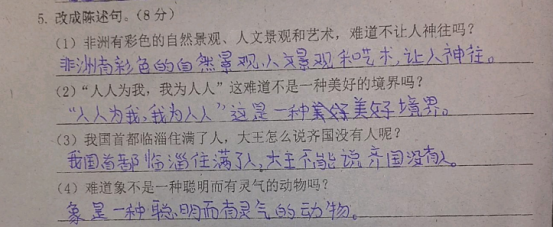 5. 改成陈述句。(8 分)
(1) 非洲有彩色的自然景观、人文景观和艺术,难道不让人神往吗?
非洲有彩色的自然景观、人文景观和艺术,让人神往。
(2)“人人为我,我为人人”这难道不是一种美好的境界吗?
“人人为我,我为人人”这是一种美好境界。
(3) 我国首都临淄住满了人,大王怎么说齐国没有人呢?
我国首都临淄住满了人,大王不能说齐国没有人。
(4) 难道象不是一种聪明而有灵气的动物吗?
象是一种聪明而有灵气的动物。